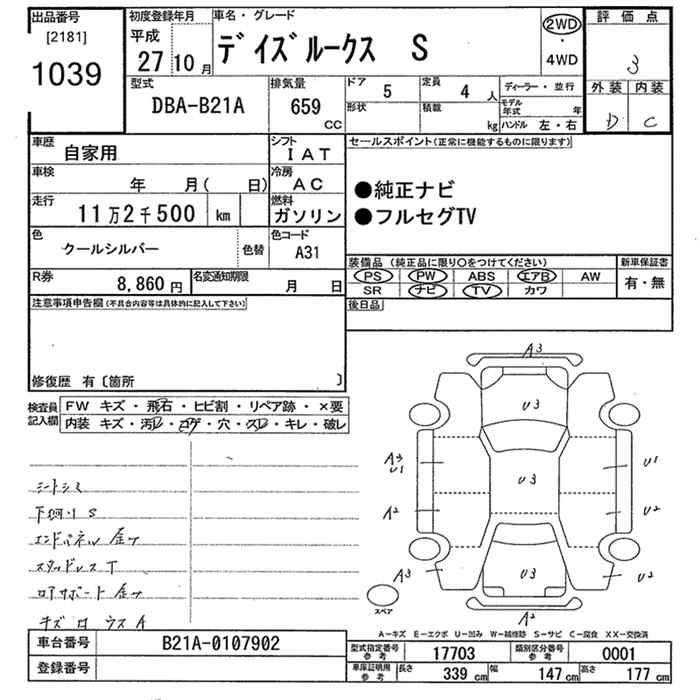 出品番号
[2181]
1039
初度登録年月
平成
27年10月
車名・グレード
デイズルークス S
2WD
・
4WD
評価点
3
外装 内装
D C
型式
DBA-B21A
排気量
659
CC
ドア 5
定員 4 人
形状
積載 kg
ディーラー・並行
モデル年式 年
ハンドル 左・右
車歴
自家用
シフト
IAT
車検
年 月( 日)
冷房
AC
走行
11万2千500 km
燃料
ガソリン
色
クールシルバー
色替
色コード
A31
R券
8,860 円
名変通知期限
月 日
セールスポイント(正常に機能するものに限ります)
●純正ナビ
●フルセグTV
装備品 (純正品に限り○をつけてください)
新車保証書
PS PW ABS エアB AW
SR ナビ TV カワ
有・無
後日品
注意事項申告欄(不具合内容等は具体的に記入して下さい)
修復歴 有〔箇所 〕
検査員記入欄
FW キズ・飛石・ヒビ割・リペア跡・×要
内装 キズ・汚レ・コゲ・穴・スレ・キレ・破レ
シートシミ
下廻りS
エンドパネル
スタッドレスT
ロアサポート
キズ
A3
U3
A3
U1
U3
U1
A2
U2
A3
U3
U2
A2
スペア
A-キズ E-エクボ U-凹み W-補修跡 S-サビ C-腐食 XX-交換済
車台番号
B21A-0107902
登録番号
型式指定番号
参考
17703
類別区分番号
参考
0001
車庫証明用
参考
長さ 339 cm
幅 147 cm
高さ 177 cm